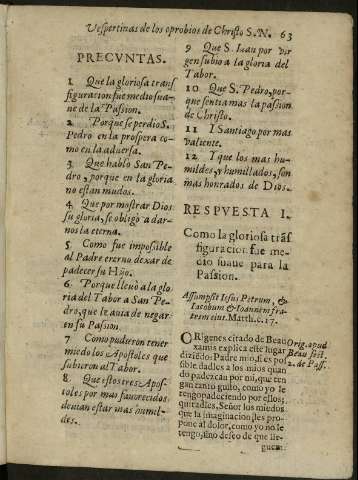 Vespertinas de los oprobios de Christo S.N. 63
PREGVNTAS.
1 Que la gloriosa transf
figuracion fue medio sua-
ue de la Passion.
2 Porque se perdio S.
Pedro en la prospera co-
mo en la aduersa.
3 Que hablò San Pe-
dro, porque en la gloria
no estan mudos.
4 Que por mostrar Dios
su gloria, se obligò a dar-
nos la eterna.
5 Como fue impossible
al Padre eterno dexar de
padecer su Hijo.
6 Porque lleuò a la glo
ria del Tabor a San Pe-
dro, que le auia de negar
en su Passion.
7 Como pudieron tener
miedo los Apostoles que
subieron al Tabor.
8 Que estos tres Apos-
toles por mas fauorecidos
deuian estar mas humil-
des.
9 Que S. Iuan por vir
gen subio a la gloria del
Tabor.
10 Que S. Pedro, por-
que sentia mas la passion
de Christo.
11 I Santiago por mas
valiente.
12 I que los mas hu-
mildes, y humillados, son
mas honrados de Dios.
RESPVESTA I.
Como la gloriosa trãs
figuracion fue me-
dio suaue para la
Passion.
Assumpsit Iesus Petrum, &
Iacobum & Ioannem fra-
trem eius. Matth. c. 17.
ORigenes citado de Beau
xamis explica este lugar
diziẽdo: Padre mio, si es pos
sible dadles a los mios quan
do padezcan por mi, que ten
gan tanto gusto, como yo le
tengo padeciendo por ellos:
quitadles, Señor los miedos
que la imaginaciõ les pro-
pone al dolor, como yo no le
tengo, sino deseo de que lle-
guen:
Orig. apud
Beau
2. de Pass.